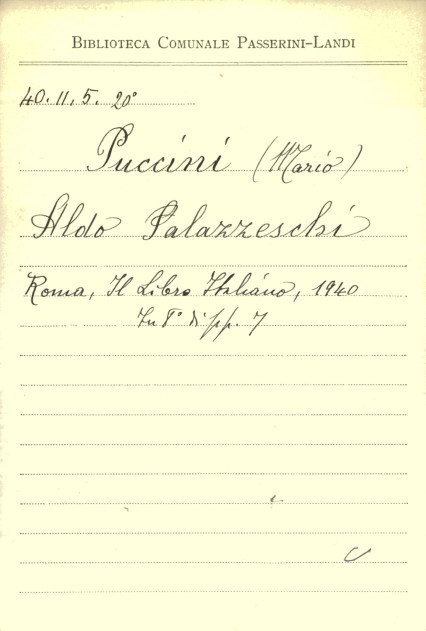 BIBLIOTECA COMUNALE PASSERINI-LANDI
40. II. 5. 20°
Puccini (Mario)
Aldo Palazzeschi
Roma, Il Libro Italiano, 1940
In 8° di pp. 7